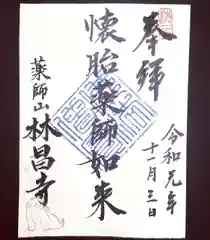 奉拝
令和元年
十一月三日
懐胎薬師如来
薬師山
林昌寺